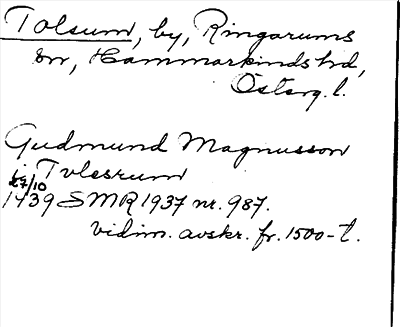 Tolsum, by, Ringarums
sn, Hammarkinds hd,
Österg. l.
Gudmund Magnusson
i Tvlesrum
27/10
1439 SMR 1937 nr. 987.
vidim. avskr. fr. 1500-t.